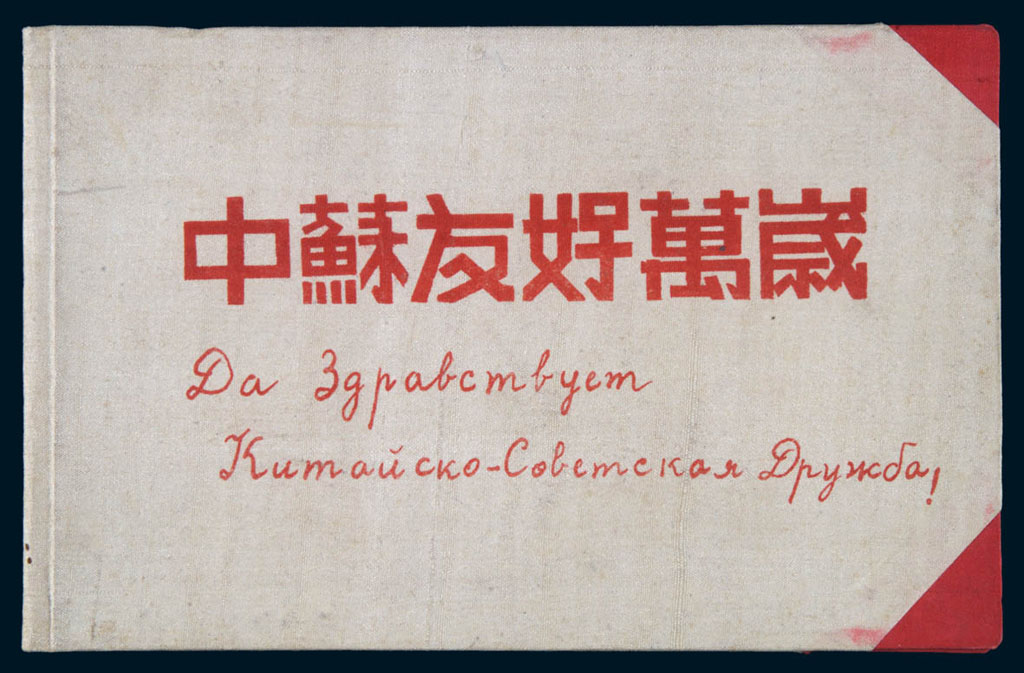 中蘇友好萬歲
Да Здравствует
Китайско-Советская Дружба!